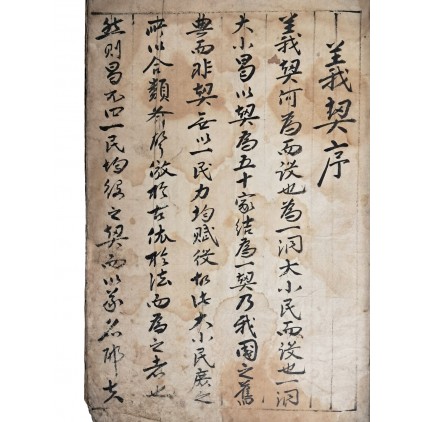 義契序
義契何為而設也為一洞大小民而設也一洞
大小曷以契為五十家結為一契乃我國之舊
典而非契無以一民力均賦役故此大小民庶之
所以合類齊聲倣於古依於法而為之者也
然則曷不曰一民均役之契而以義名耶夫